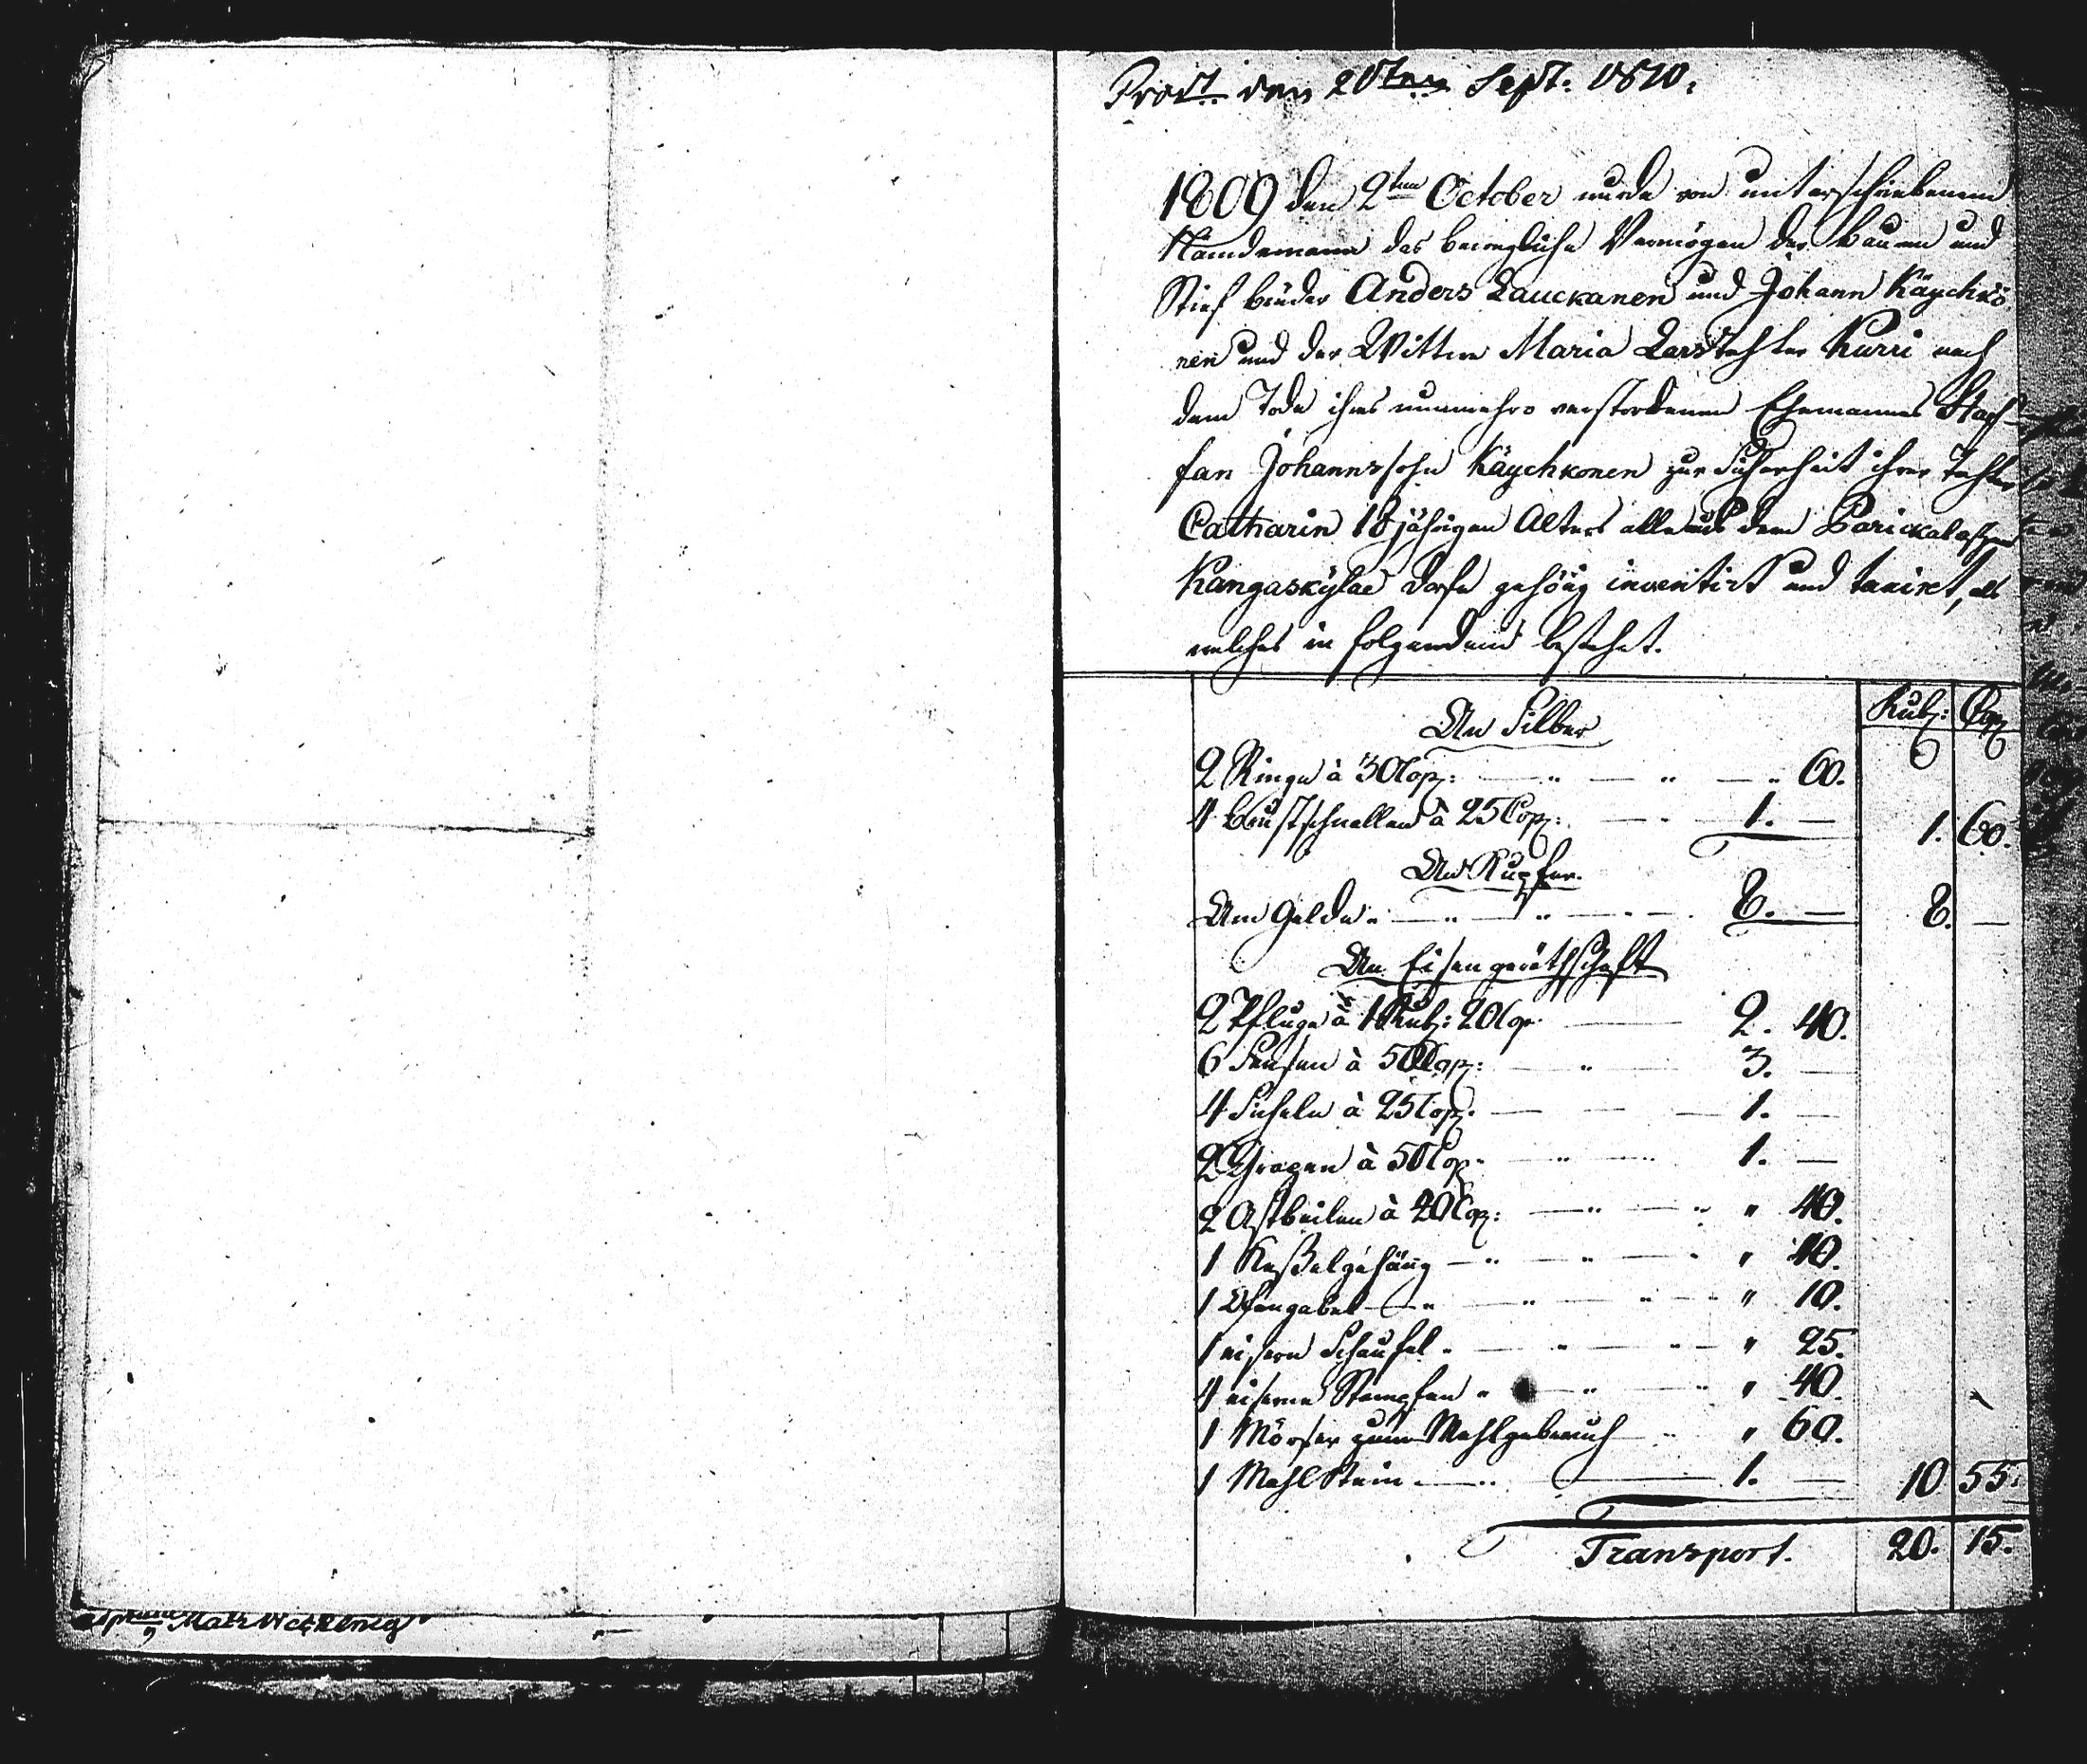 Prod. den 20ten Sept. 1810.
1809 den 2ten October wurde von unterschriebenem
Nämdemann das bewegliche Vermögen der bauern und
Stief brüder Anders Lauckanen und Johann Käychkö
nen und der Wittwe Maria Larstochter Kurri nach
dem Tode ihres nunmehro verstorbenen Ehemannes Staf-
fan Johannssohn Käychkonen zur Sicherheit ihrer Tochter
Catharin 18 jährigen Alters alle aus dem Parickalaschen
Kangaskylae dorfe gehörig inventirt und taxiret, als
welches in folgendem bestehet.
Rub: Cop
An Silber
2 Ringe à 30 Cop: — " — " — " 60.
4 brustschnallen à 25 Cop: — 1. — 1. 60.
An Kupfer.
Am Gelde " — " — " — 8. — 8. —
An Eisengeräthschaft
2 Pfluge à 1 Rub: 20 Cop — 2. 40.
6 Sensen à 50 Cop: — " — 3. —
4 Sicheln à 25 Cop. — 1. —
2 Grapen à 50 Cop. — " — 1. —
2 Astbeilen à 20 Cop: — " — " " 40.
1 Keßelgehäng — " — " — " 40.
1 Ofengabel — " — " — " — " 10.
1 eisern Schaufel " — " — " — " 25.
4 eiserne Stampfen " — " — " " 40.
1 Mörser zum Mehlgebrauch — " " 60.
1 Mahl Stein — " — 1. — 10 55.
Transport. 20. 15.